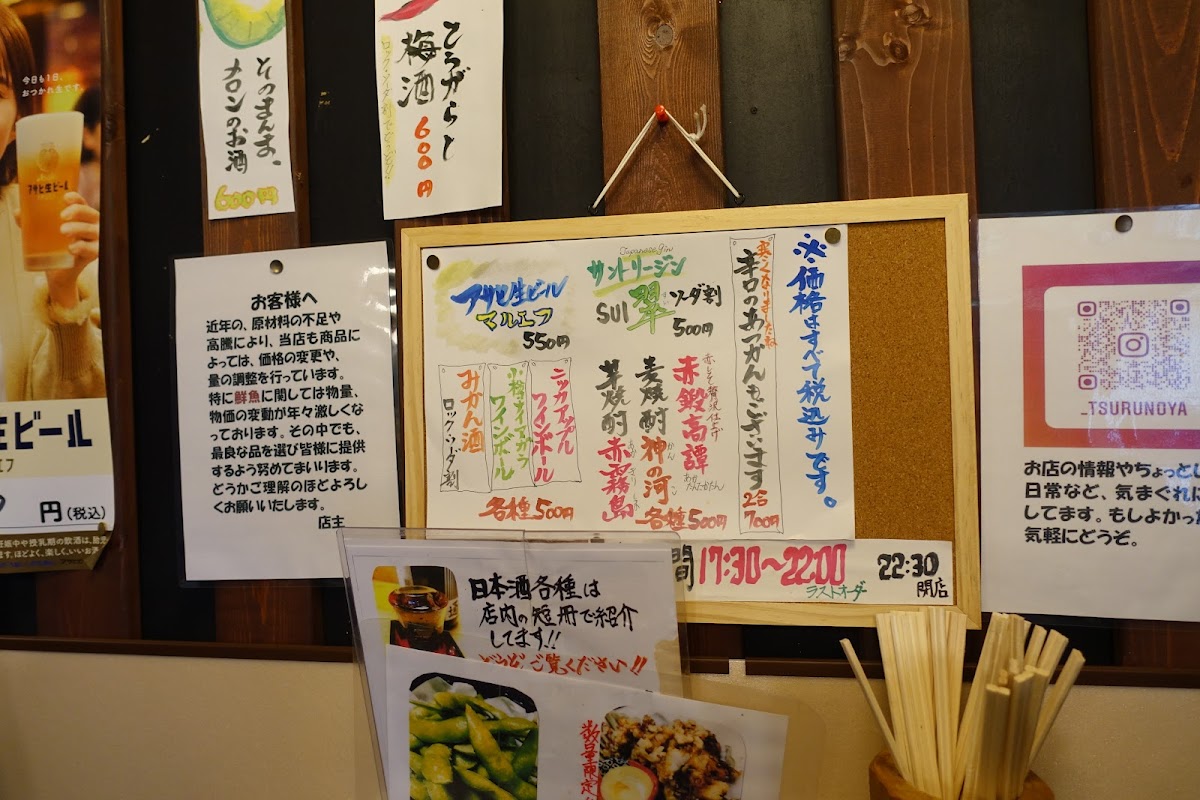 今日も1日、
おつかれ生です。
アサヒ生ビール
生ビール
円(税込)
そのまんま、
メロンのお酒
600円
とうがらし
梅酒
600円
お客様へ
近年の、原材料の不足や
高騰により、当店も商品に
よっては、価格の変更や、
量の調整を行っています。
特に鮮魚に関しては物量、
物価の変動が年々激しくな
っております。その中でも、
最良な品を選び皆様に提供
するよう努めてまいります。
どうかご理解のほどよろし
くお願いいたします。
店主
アサヒ生ビール
マルエフ
550円
Japanese Gin
サントリージン
SUI 翠 ソーダ割
500円
※価格はすべて税込みです。
寒くなりましたね
辛口のあつかんもございます
2合
700円
赤しそ贅沢仕上げ
赤鍛高譚
あか たんたかたん
麦焼酎 神の河
かん こ
芋焼酎 赤霧島
あか きり しま
各種500円
ニッカアップル
ワインボール
ワインボール
みかん酒
ロック・ソーダ割
各種500円
間 17:30〜22:00
ラストオーダー
22:30
閉店
_TSURUNOYA
お店の情報やちょっとし
日常など、気まぐれに
してます。もしよかった
気軽にどうぞ。
日本酒各種は
店内の短冊で紹介
してます!!
どうぞご覧ください!!
数量限定